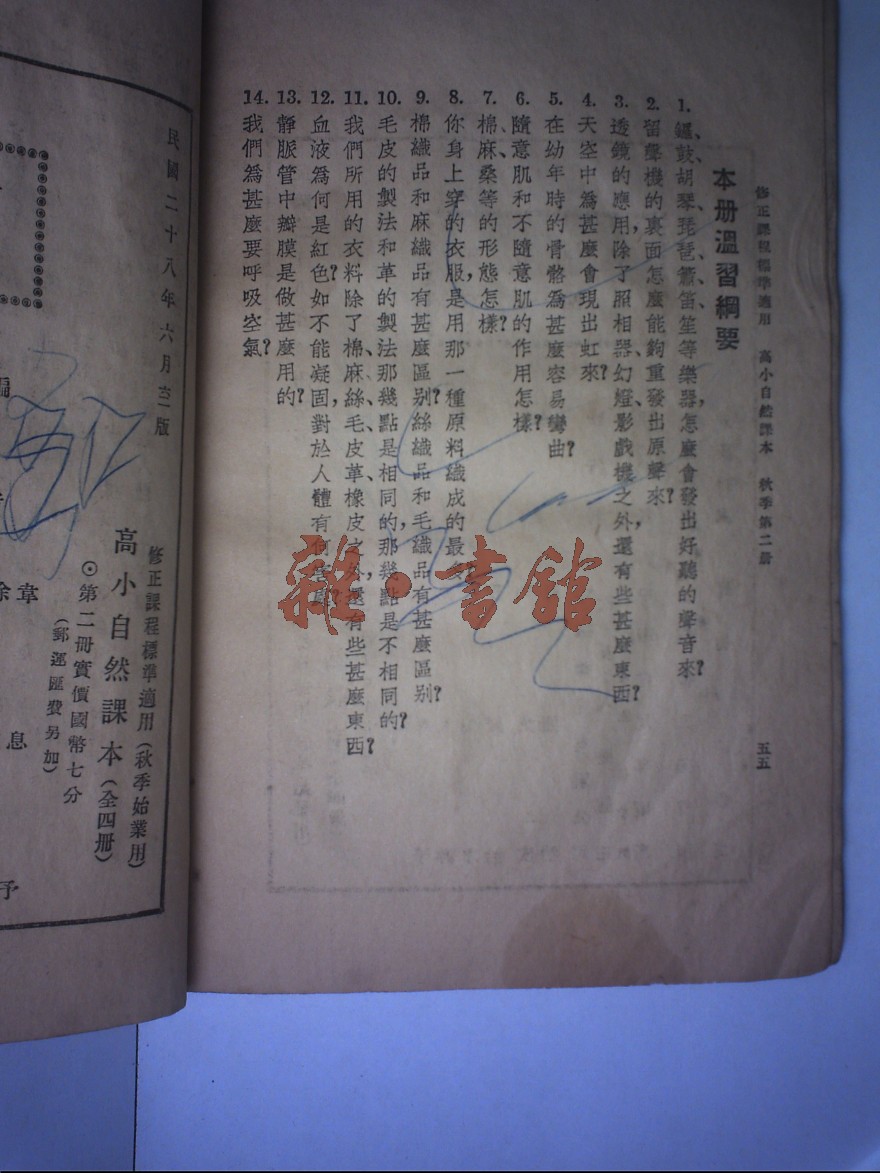 修正課程標準適用　高小自然課本　秋季第二册
五五
本册溫習綱要
1. 鑼、鼓、胡琴、琵琶、簫、笛、笙等樂器,怎麼會發出好聽的聲音來?
2. 留聲機的裏面怎麼能夠重發出原聲來?
3. 透鏡的應用,除了照相器、幻燈、影戲機之外,還有些甚麼東西?
4. 天空中爲甚麼會現出虹來?
5. 在幼年時的骨骼爲甚麼容易彎曲?
6. 隨意肌和不隨意肌的作用怎樣?
7. 棉、麻、桑等的形態怎樣?
8. 你身上穿的衣服,是用那一種原料織成的最多?
9. 棉織品和麻織品有甚麼區别?絲織品和毛織品有甚麼區别?
10. 毛皮的製法和革的製法那幾點是相同的,那幾點是不相同的?
11. 我們所用的衣料除了棉、麻、絲、毛、皮革、橡皮之外,還有些甚麼東西?
12. 血液爲何是紅色?如不能凝固,對於人體有何
13. 靜脈管中瓣膜是做甚麼用的?
14. 我們爲甚麼要呼吸空氣?
雜·書館
民國二十八年六月三版
修正課程標準適用(秋季始業用)
高小自然課本(全四册)
⊙第二册實價國幣七分
(郵運匯費另加)
編
韋
徐
息
予